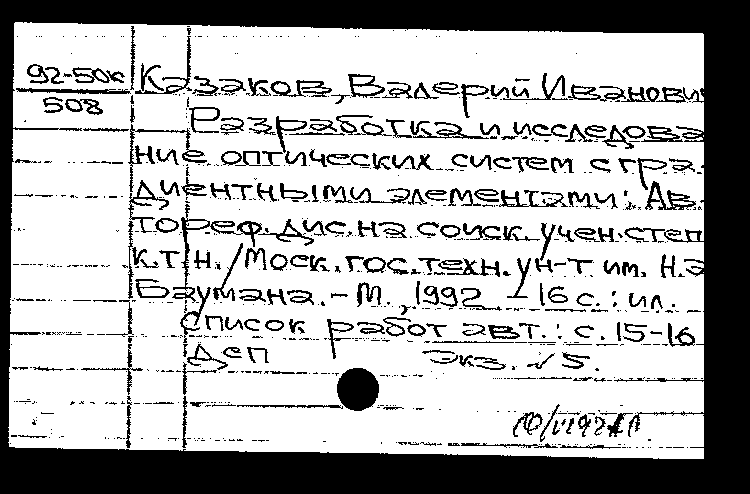 92-50к Казаков, Валерий Иванович
508
Разработка и исследова
ние оптических систем с гра-
диентными элементами: Ав-
тореф. дис. на соиск. учен. степ
к.т.н. / Моск. гос. техн. ун-т им. Н.Э
Баумана. - М., 1992 - 16 с.: ил.
Список работ авт.: с. 15-16
ДСП Экз. √ 5.